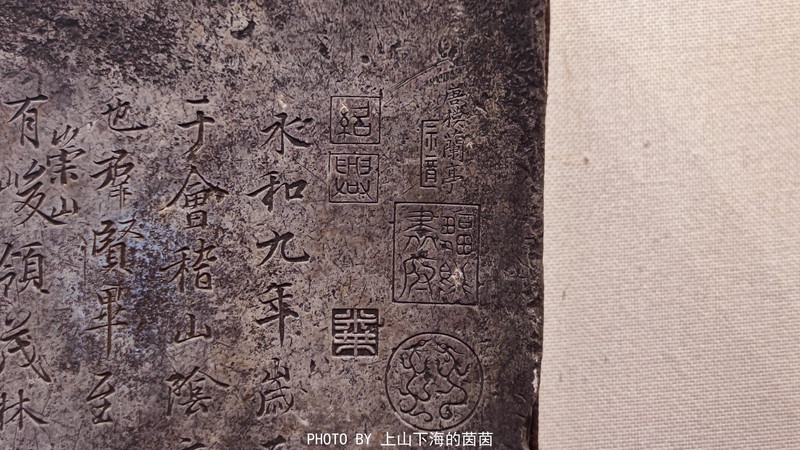 唐模蘭亭
紹
興
永和九年歲
于會稽山陰
也羣賢畢至
崇山
有峻領茂林
PHOTO BY 上山下海的茵茵